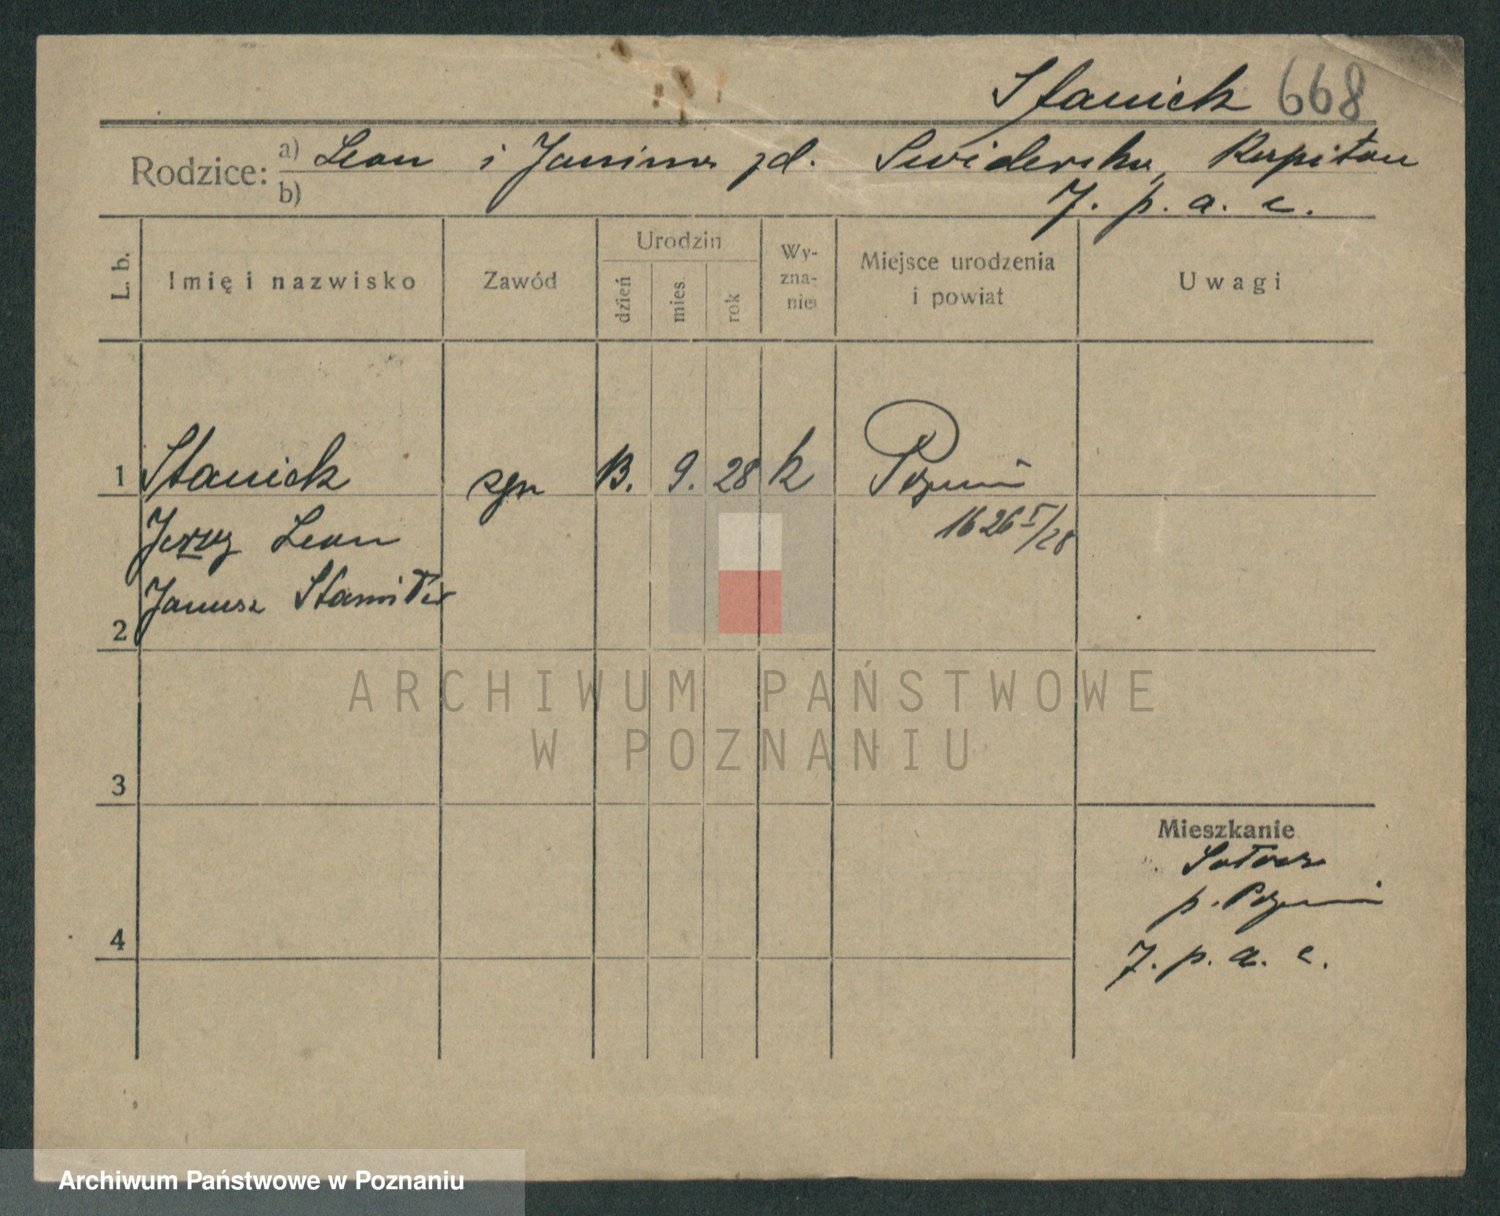 Staniek 668
Rodzice: a) Leon i Janina zd. Swiderska, Kapitan
b) 7. p. a. c.
L. b. Imię i nazwisko Zawód Urodzin dzień mies. rok Wyznanie Miejsce urodzenia i powiat Uwagi
1 Staniek 13. 9. 28 k Poznań
Jerzy Leon 1626 I/28
Janusz
2
3
Mieszkanie
Sołacz
p. Poznań
4
7. p. a. c.
ARCHIWUM PAŃSTWOWE
W POZNANIU
Archiwum Państwowe w Poznaniu